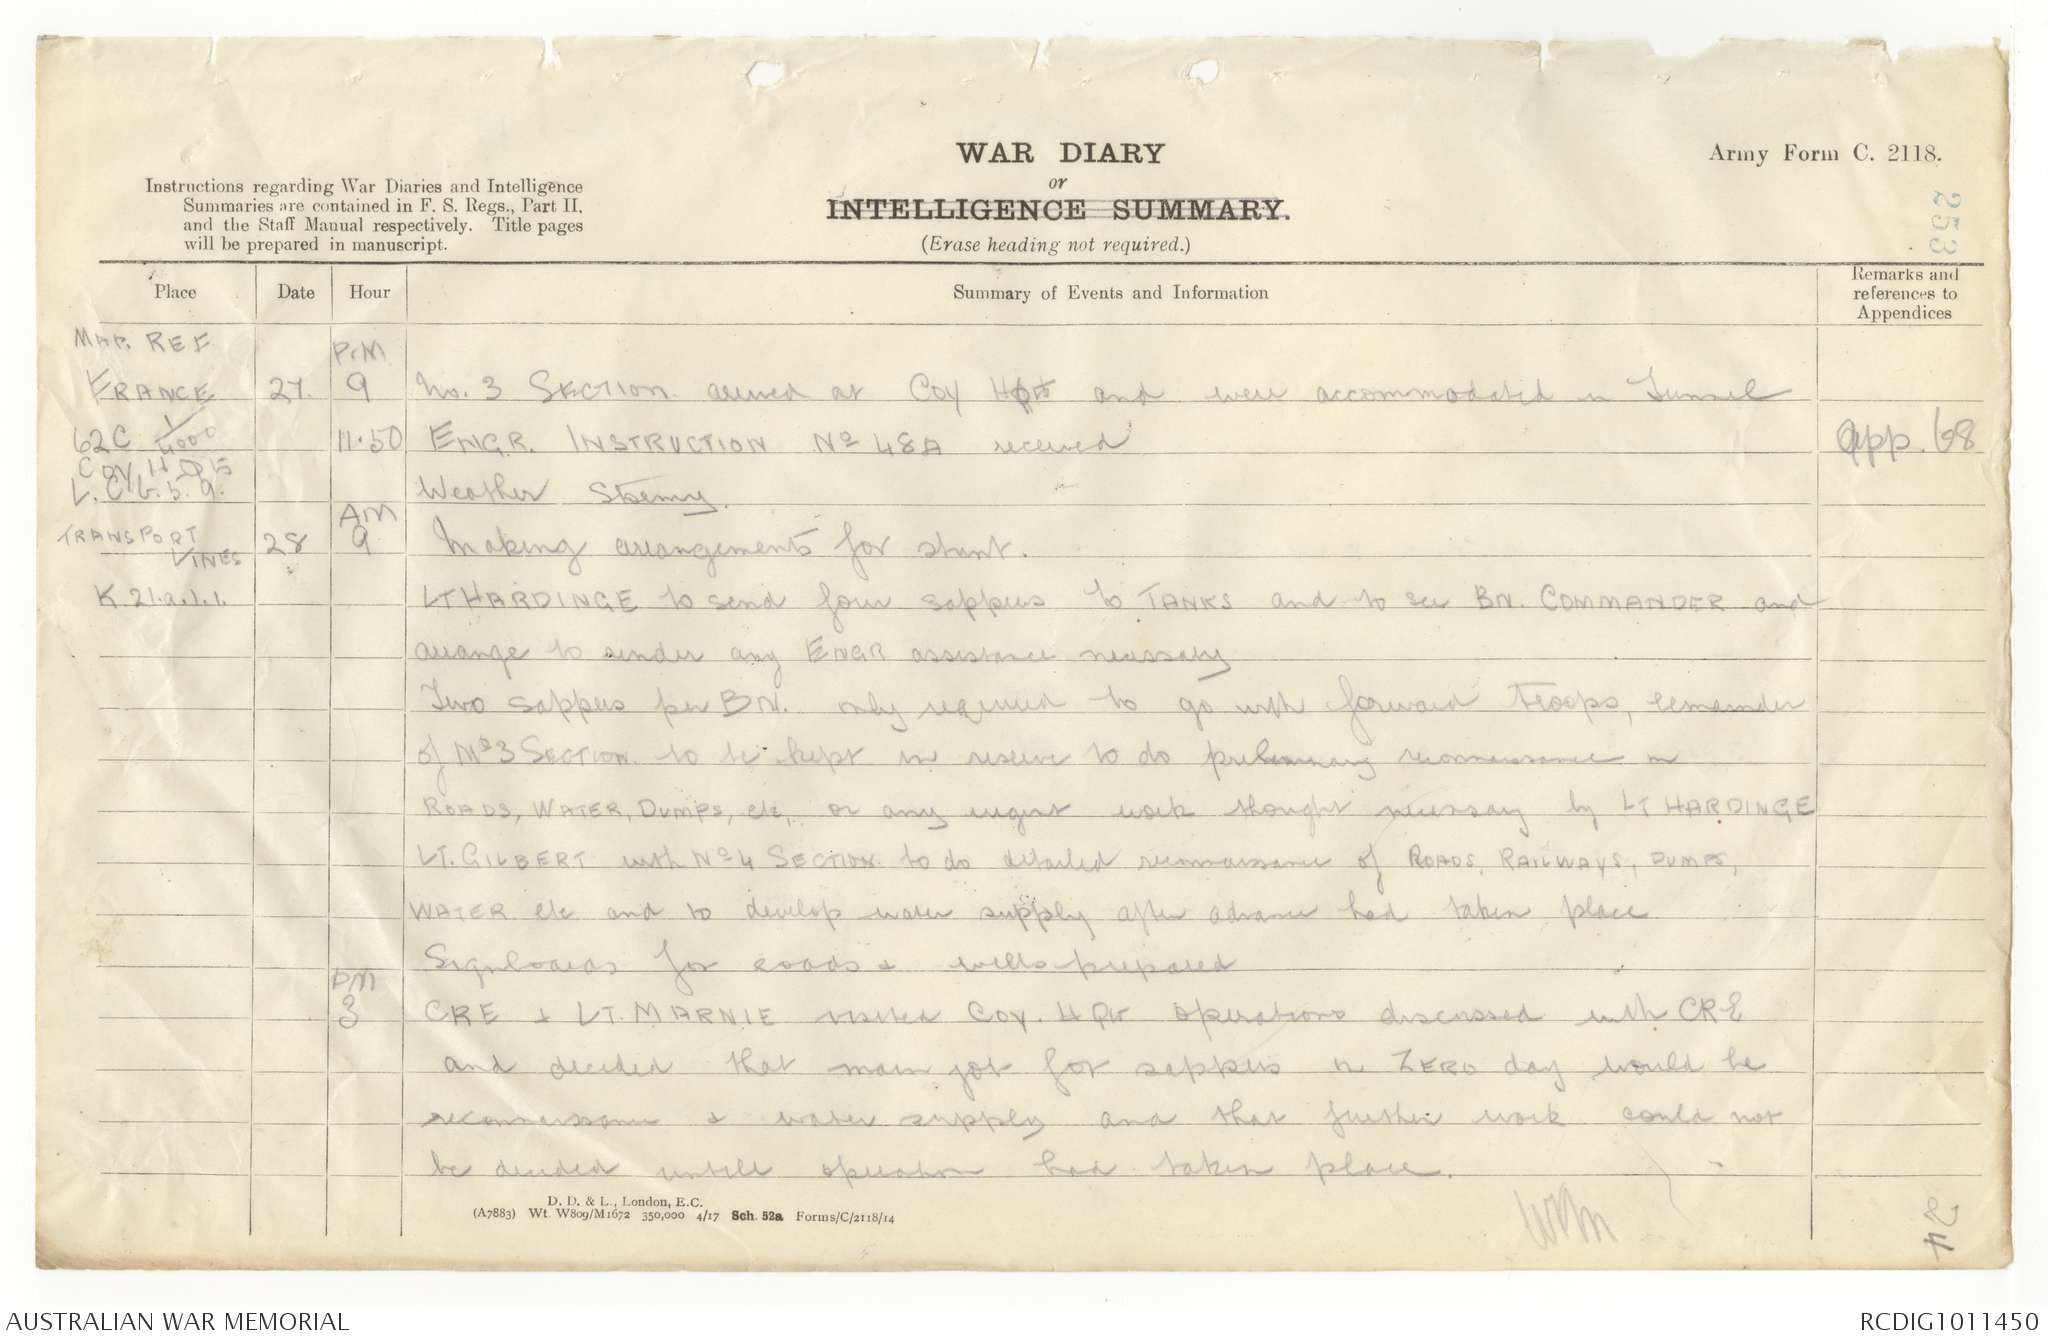 WAR DIARY
or
INTELLIGENCE SUMMARY.
(Erase heading not required.)
Army Form C. 2118.
253
Instructions regarding War Diaries and Intelligence
Summaries are contained in F. S. Regs., Part II.
and the Staff Manual respectively. Title pages
will be prepared in manuscript.
Place Date Hour Summary of Events and Information Remarks and references to Appendices
MAP. REF. P.M
FRANCE 27. 9 No. 3 SECTION arrived at COY HQrs and were accommodated in Tunnel
62C 11.50 ENGR. INSTRUCTION No 48A received app. 68
COY. H.QRS
L. C. 6. 5. 9. Weather Stormy.
AM
TRANSPORT
LINES 28 9 Making arrangements for stunt.
K 21.a.1.1. LT HARDINGE to send four sappers to TANKS and to see BN. COMMANDER and
arrange to render any ENGR assistance necessary
Two sappers per BN. only required to go with forward troops, remainder
of No 3 SECTION to be kept in reserve to do preliminary reconnaissance on
ROADS, WATER, DUMPS, etc, or any urgent work thought necessary by LT HARDINGE
LT. GILBERT with No 4 SECTION to do detailed reconnaissance of ROADS, RAILWAYS, DUMPS,
WATER etc and to develop water supply after advance had taken place
Signboards for roads & wells prepared
PM
3 CRE & LT. MARNIE visited COY. HQrs operations discussed with CRE
and decided that main job for sappers on ZERO day would be
reconnaissance & water supply and that further work could not
be decided untill operation had taken place.
D. D. & L., London, E.C.
(A7883) Wt. W809/M1672 350,000 4/17 Sch. 52a Forms/C/2118/14
24
AUSTRALIAN WAR MEMORIAL
RCDIG1011450